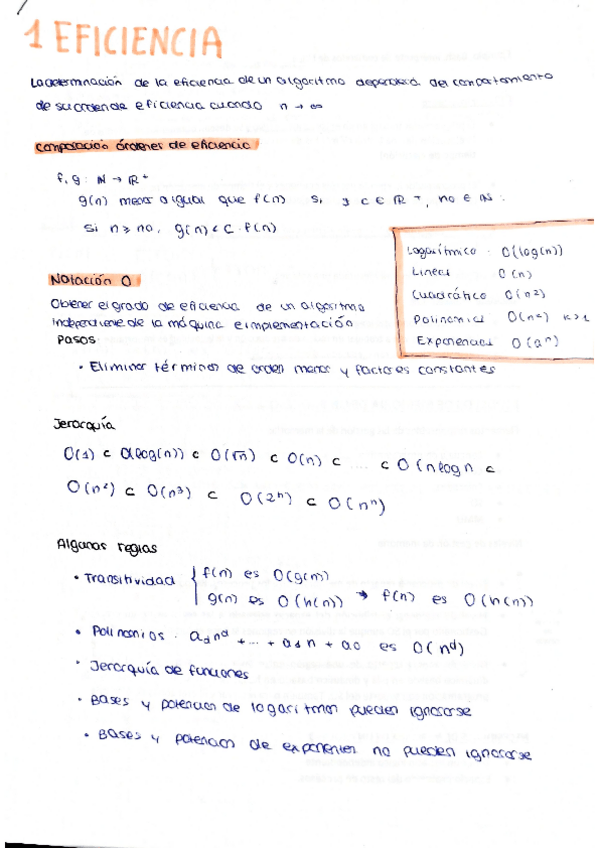 1 EFICIENCIA
La determinación de la eficiencia de un algoritmo dependerá del comportamiento
de su orden de eficiencia cuando n → ∞
Comparación órdenes de eficiencia
f, g : ℕ → ℝ⁺
g(n) menor o igual que f(n) si ∃ c ∈ ℝ⁺, n₀ ∈ ℕ :
si n ≥ n₀, g(n) < c · f(n)
Logarítmico · O(log(n))
Lineal O(n)
Cuadrático O(n²)
Polinomial O(nᵏ) k>1
Exponencial O(aⁿ)
Notación O
Obtener el grado de eficiencia de un algoritmo
independiente de la máquina e implementación
Pasos:
• Eliminar términos de orden menor y factores constantes
Jerarquía
O(1) ⊂ O(log(n)) ⊂ O(√n) ⊂ O(n) ⊂ .... ⊂ O(nlogn ⊂
O(n²) ⊂ O(n³) ⊂ O(2ⁿ) ⊂ O(nⁿ)
Algunas reglas
• Transitividad { f(n) es O(g(n))
g(n) es O(h(n)) → f(n) es O(h(n))
• Polinomios · a_d n^d + ... + a₁n + a₀ es O(n^d)
• Jerarquía de funciones
• Bases y potencias de logaritmos pueden ignorarse
• Bases y potencias de exponentes no pueden ignorarse